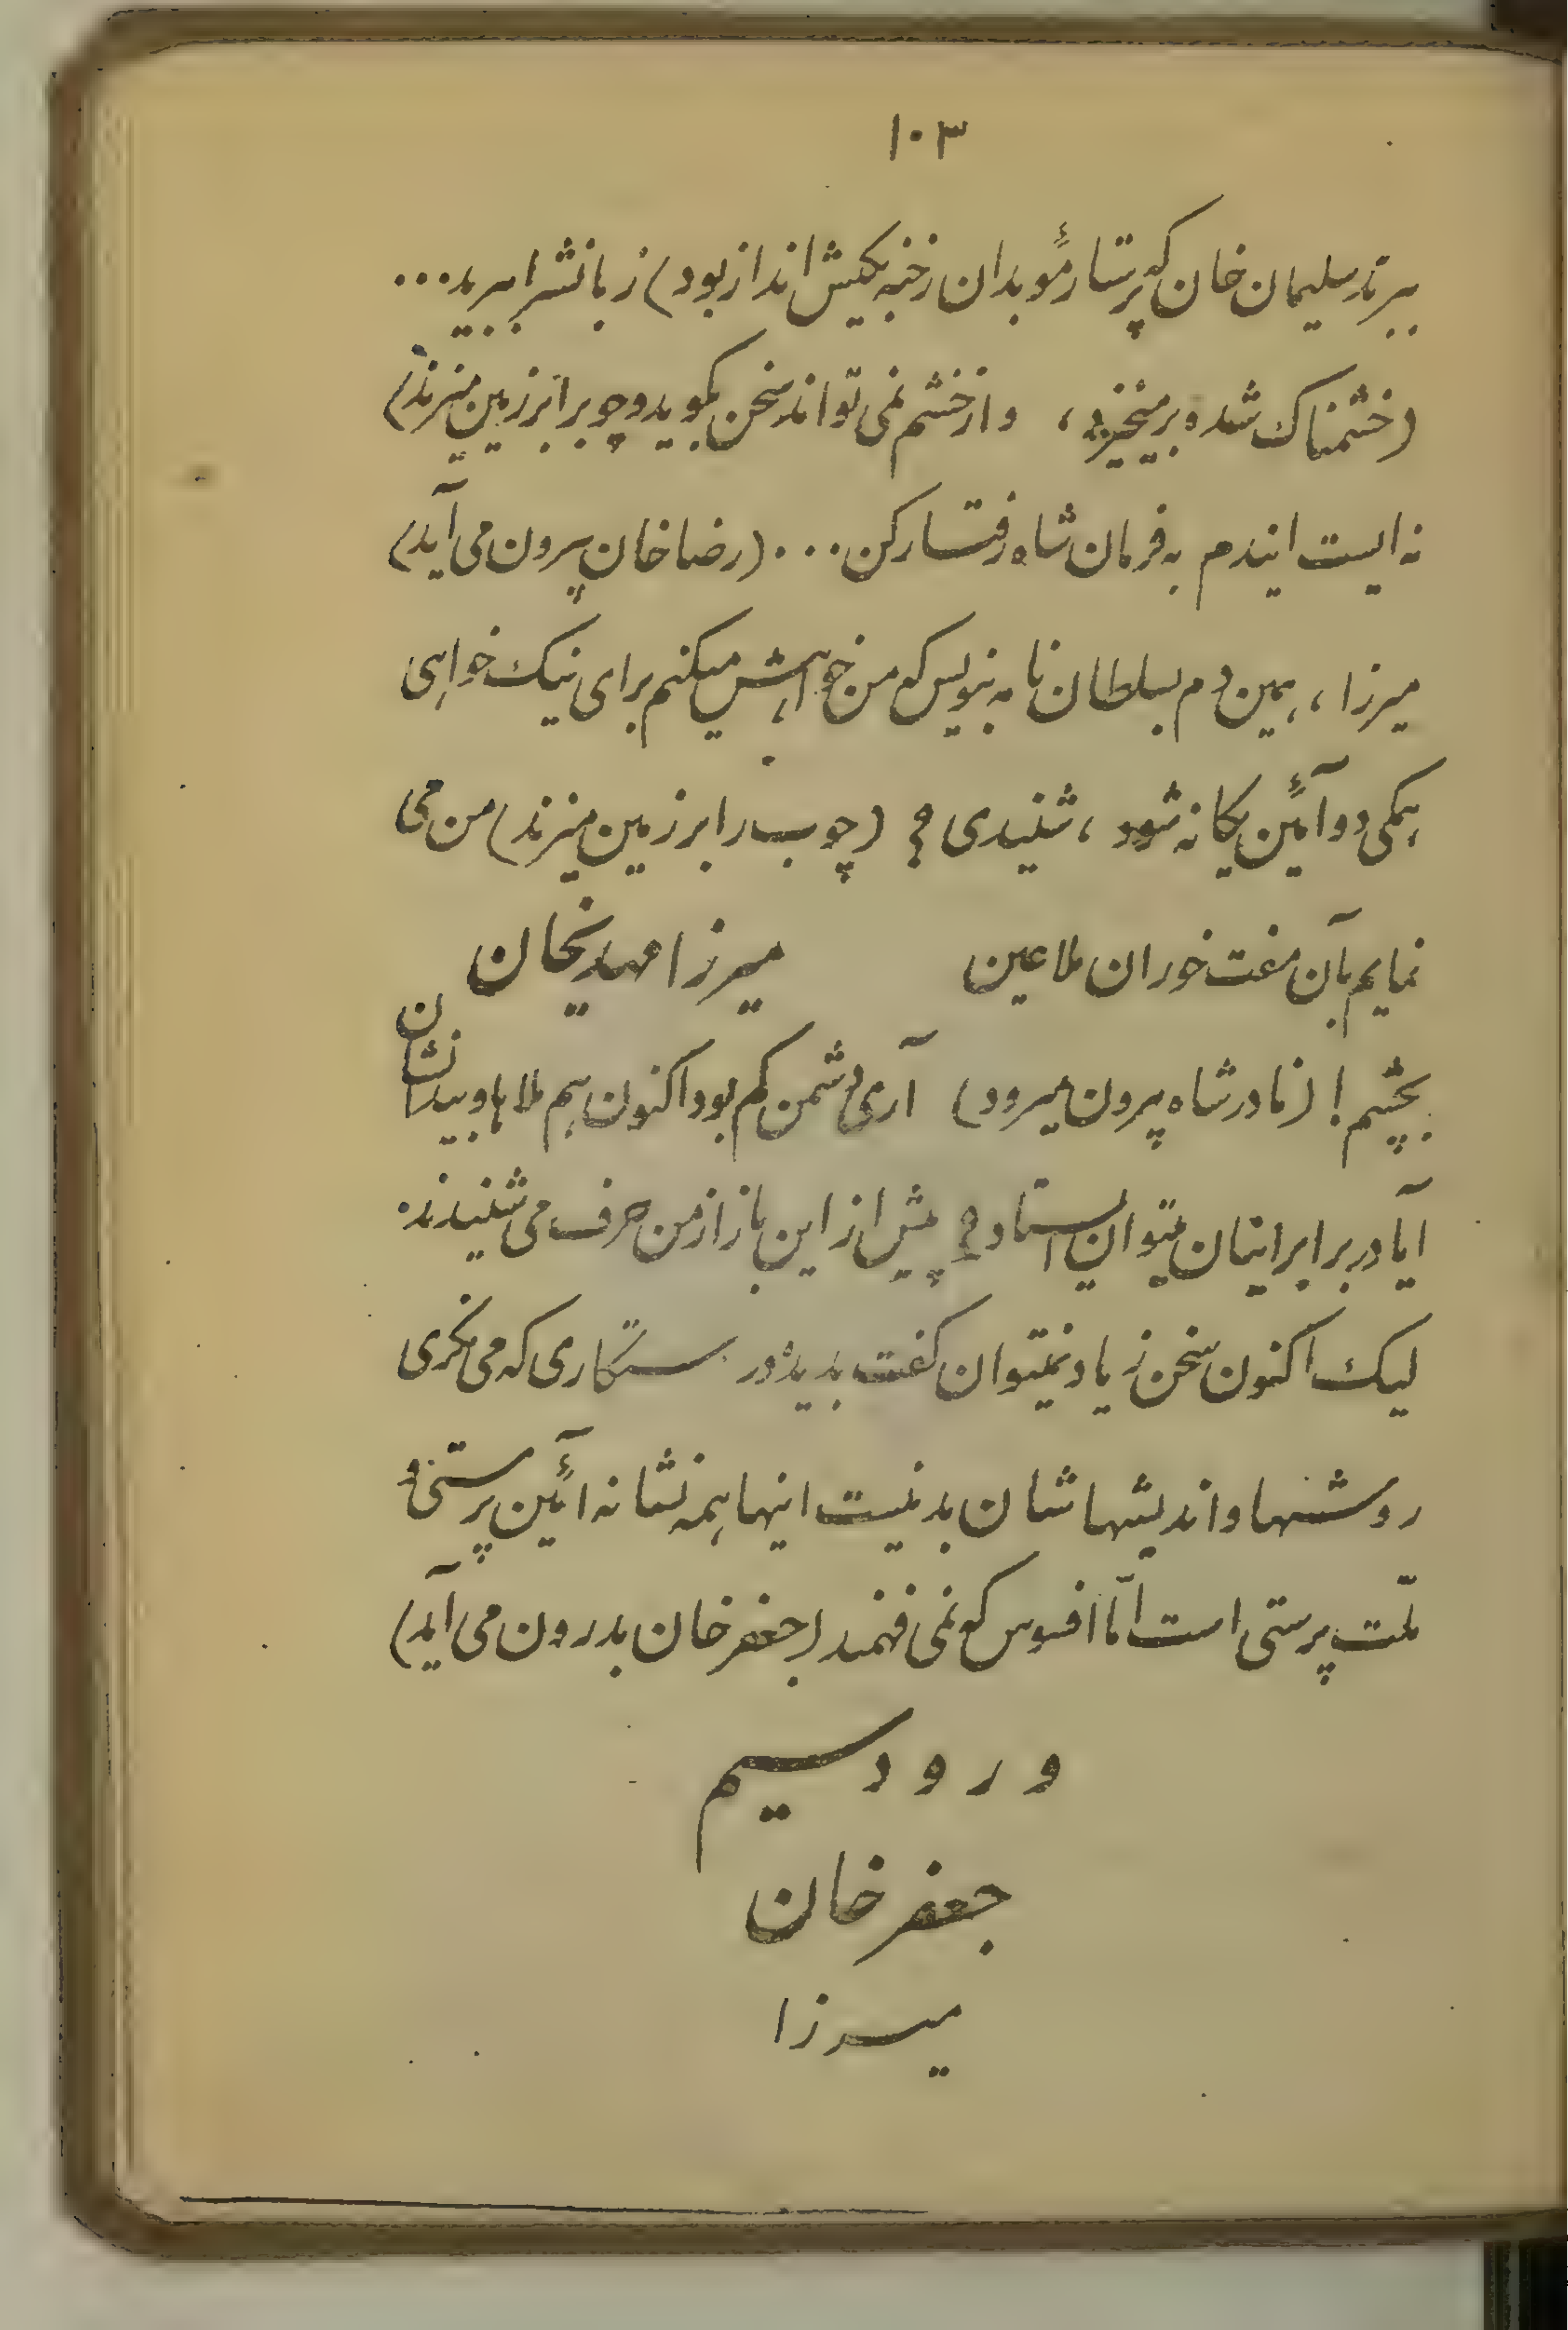 ۱۰۳
ببرند سلیمان خان که پرستار مؤبدان رخنه بکیش انداز بود) زبانش را ببرید...
(خشمناک شده برمیخیزد، و از خشم نمی تواند سخن بگوید و چوب را بر زمین میزند)
نه ایست ایندم به فرمان شاه رفتار کن... (رضا خان بیرون می آید)
میرزا، همین دم بسلطان نامه بنویس که من خواهش میکنم برای نیک خواهی
همگی دو آئین یگانه شود، شنیدی؟ (چوب را بر زمین میزند) من می
نمایم بآن مفت خوران ملاعین میرزا مهدیخان
بچشم! (نادرشاه بیرون میرود) آری دشمن کم بود اکنون هم ملاها و بیدانشان
آیا در برابر اینان میتوان ایستاد؟ پیش از این باز از من حرف می شنیدند.
لیک اکنون سخن زیاد نمیتوان گفت بدیده ور ستمکاری که می نگری
روشنها و اندیشهاشان بد نیست اینها همه نشانه آئین پرستی و
ملّت پرستی است امّا افسوس که نمی فهمند (جعفر خان بدرون می آید)
ورود سیم
جعفر خان
میرزا